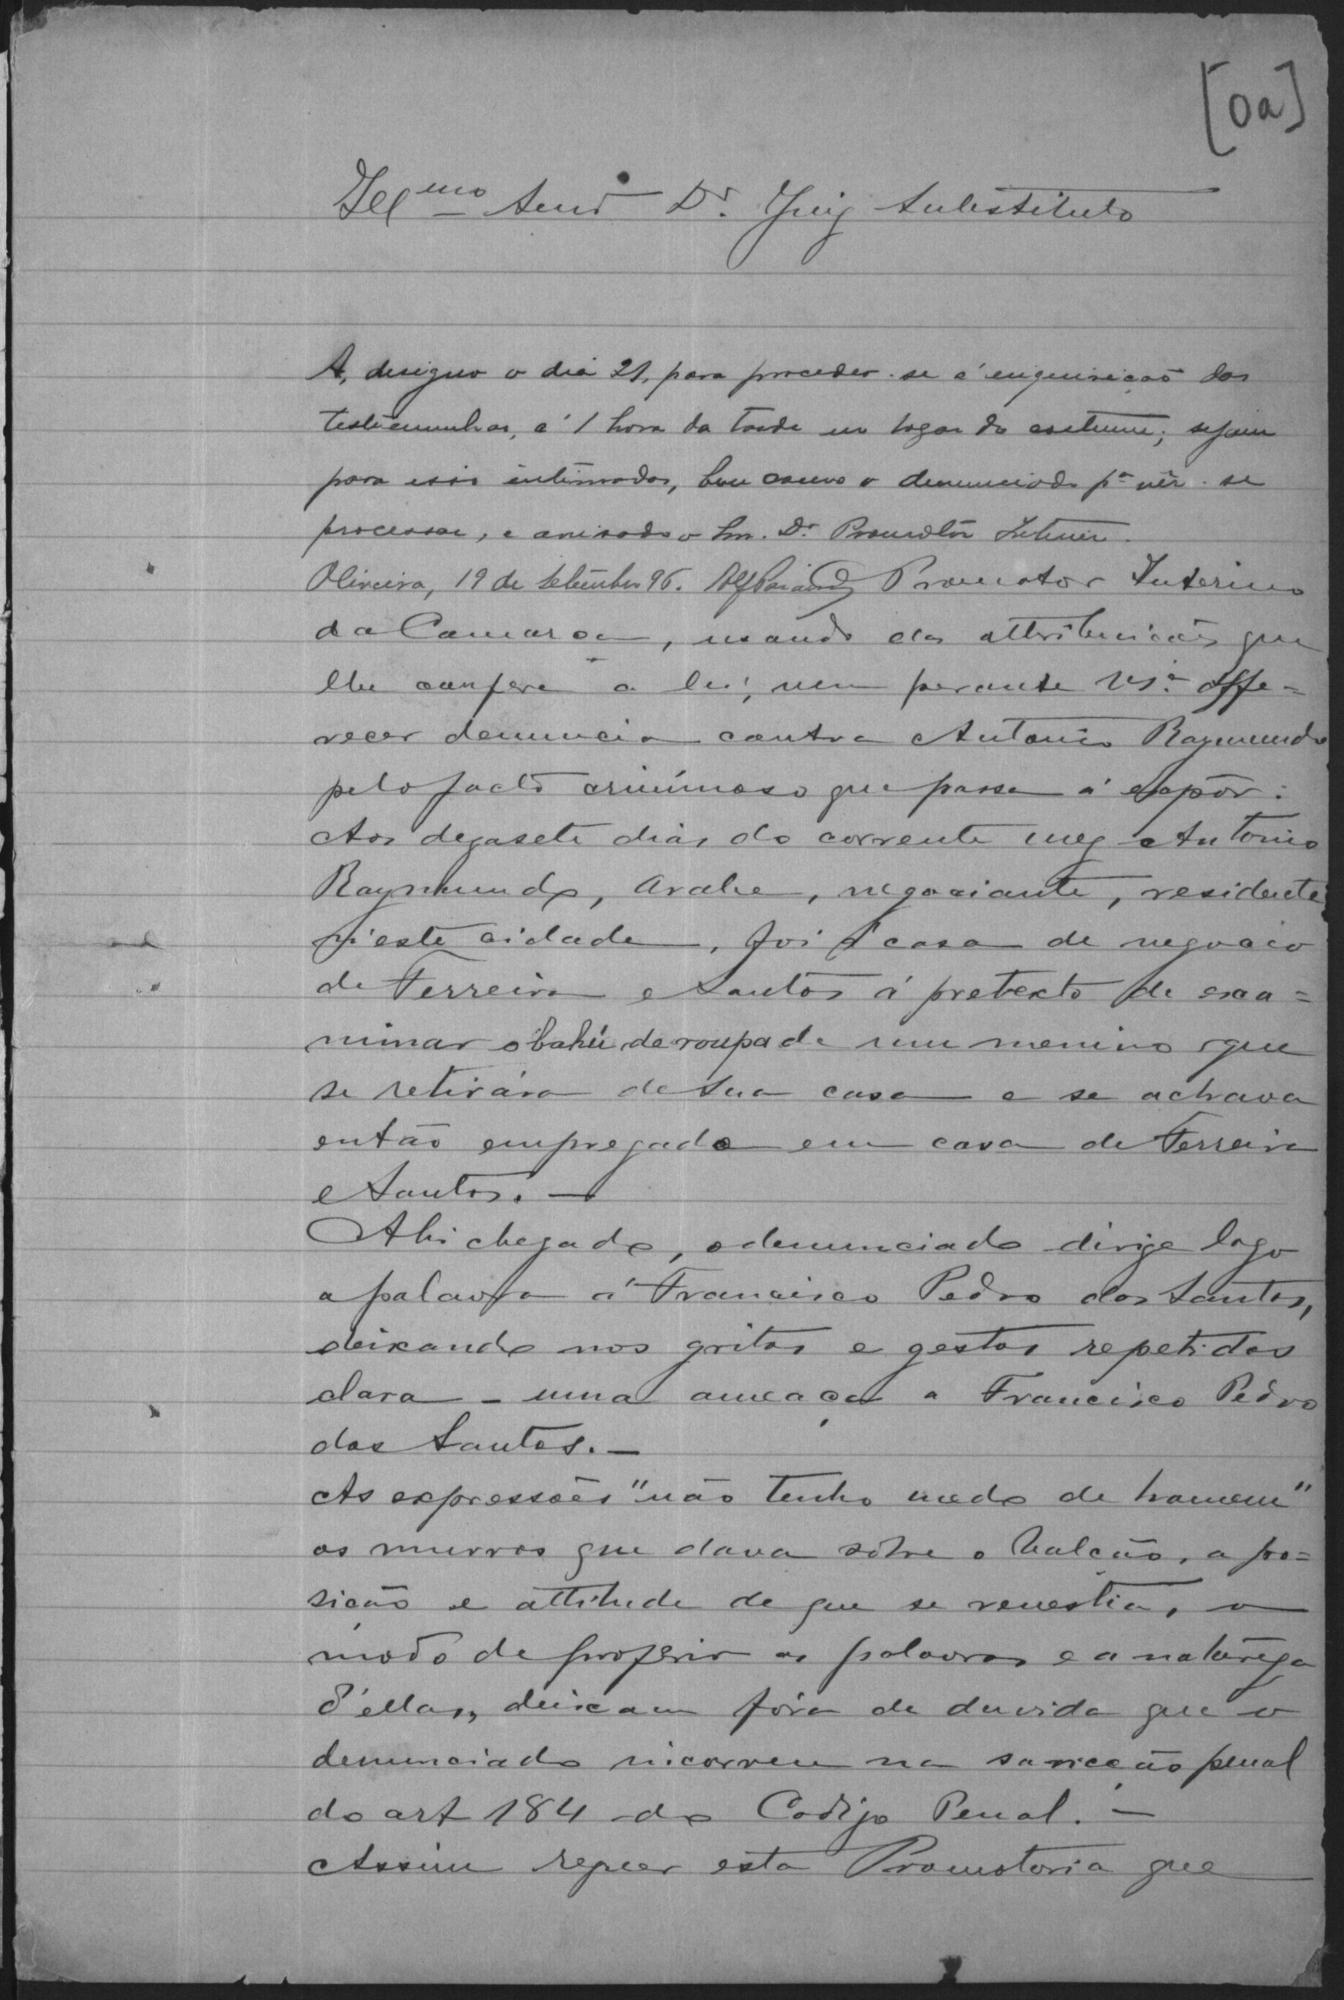 [0a]
Ill.mo Senr Dr. Juiz Substituto
A, designo o dia 21, para proceder-se á enquirição das
testemunhas, á 1 hora da tarde no logar do costume; sejam
para isso intimados, bem como o denunciado pa. vêr-se
processar, e avisado o Snr. Dr. Promotôr Interino.
Oliveira, 19 de Setembro 96.
O Promotor Interino
da Comarca, usando das attribuicões que
lhe confere a lei, vem perante VSa. offe=
recer denuncia contra Antonio Raymundo
pelo facto criminoso que passa á expôr:
Aos dezasete dias do corrente mez Antonio
Raymundo, Arabe, negociante, residente
n'esta cidade, foi á casa de negocio
de Ferreira e Santos á pretexto de exa=
minar o bahú de roupa de um menino que
se retirára de sua casa e se achava
então empregado em casa de Ferreira
e Santos. —
Ahi chegado, o denunciado dirige logo
a palavra á Francisco Pedro dos Santos,
deixando nos gritos e gestos repetidos
clara - uma ameaça a Francisco Pedro
dos Santos. —
As expressões "não tenho medo de homem"
os murros que dava sobre o balcão, a po=
sicão e attitude de que se revestia, o
modo de proferir as palavras e a natureza
d'ellas, deixam fóra de duvida que o
denunciado incorreu na sancção penal
do art 184 do Codigo Penal. —
Assim requer esta Promotoria que